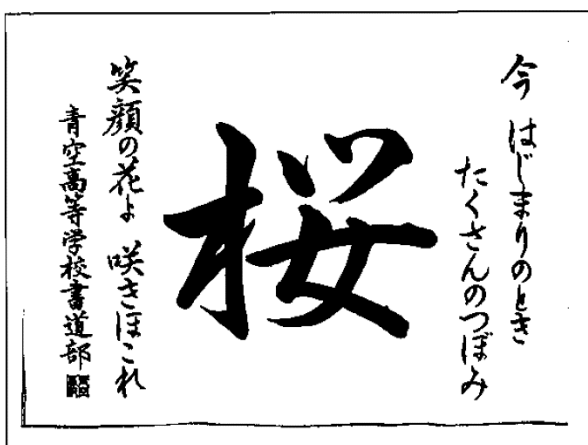 今 はじまりのとき
たくさんのつぼみ
桜
笑顔の花よ 咲きほこれ
青空高等学校書道部